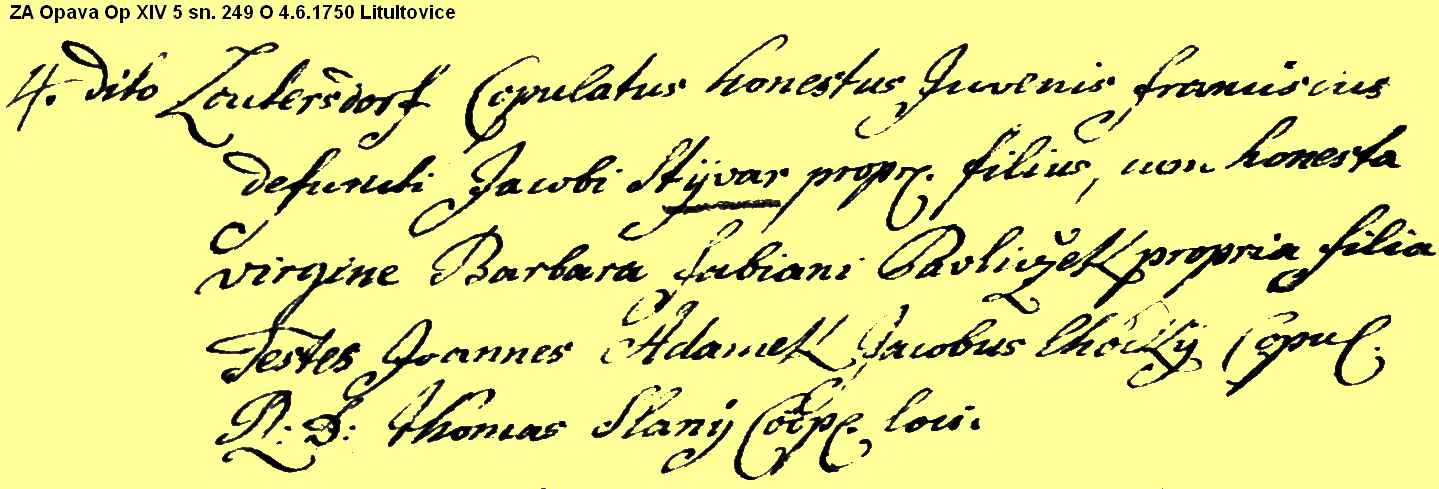 ZA Opava Op XIV 5 sn. 249 O 4.6.1750 Litultovice
4. dito Leutersdorf Copulatus honestus Juvenis franciscus
defuncti Jacobi Stÿvar propr. filius, cum honesta
virgine Barbara Fabiani Pavliczek propria filia
Testes Joannes Adamek Jacobus Lhockÿ Copul.
R: D: Thomas Slanÿ Coop. loci.